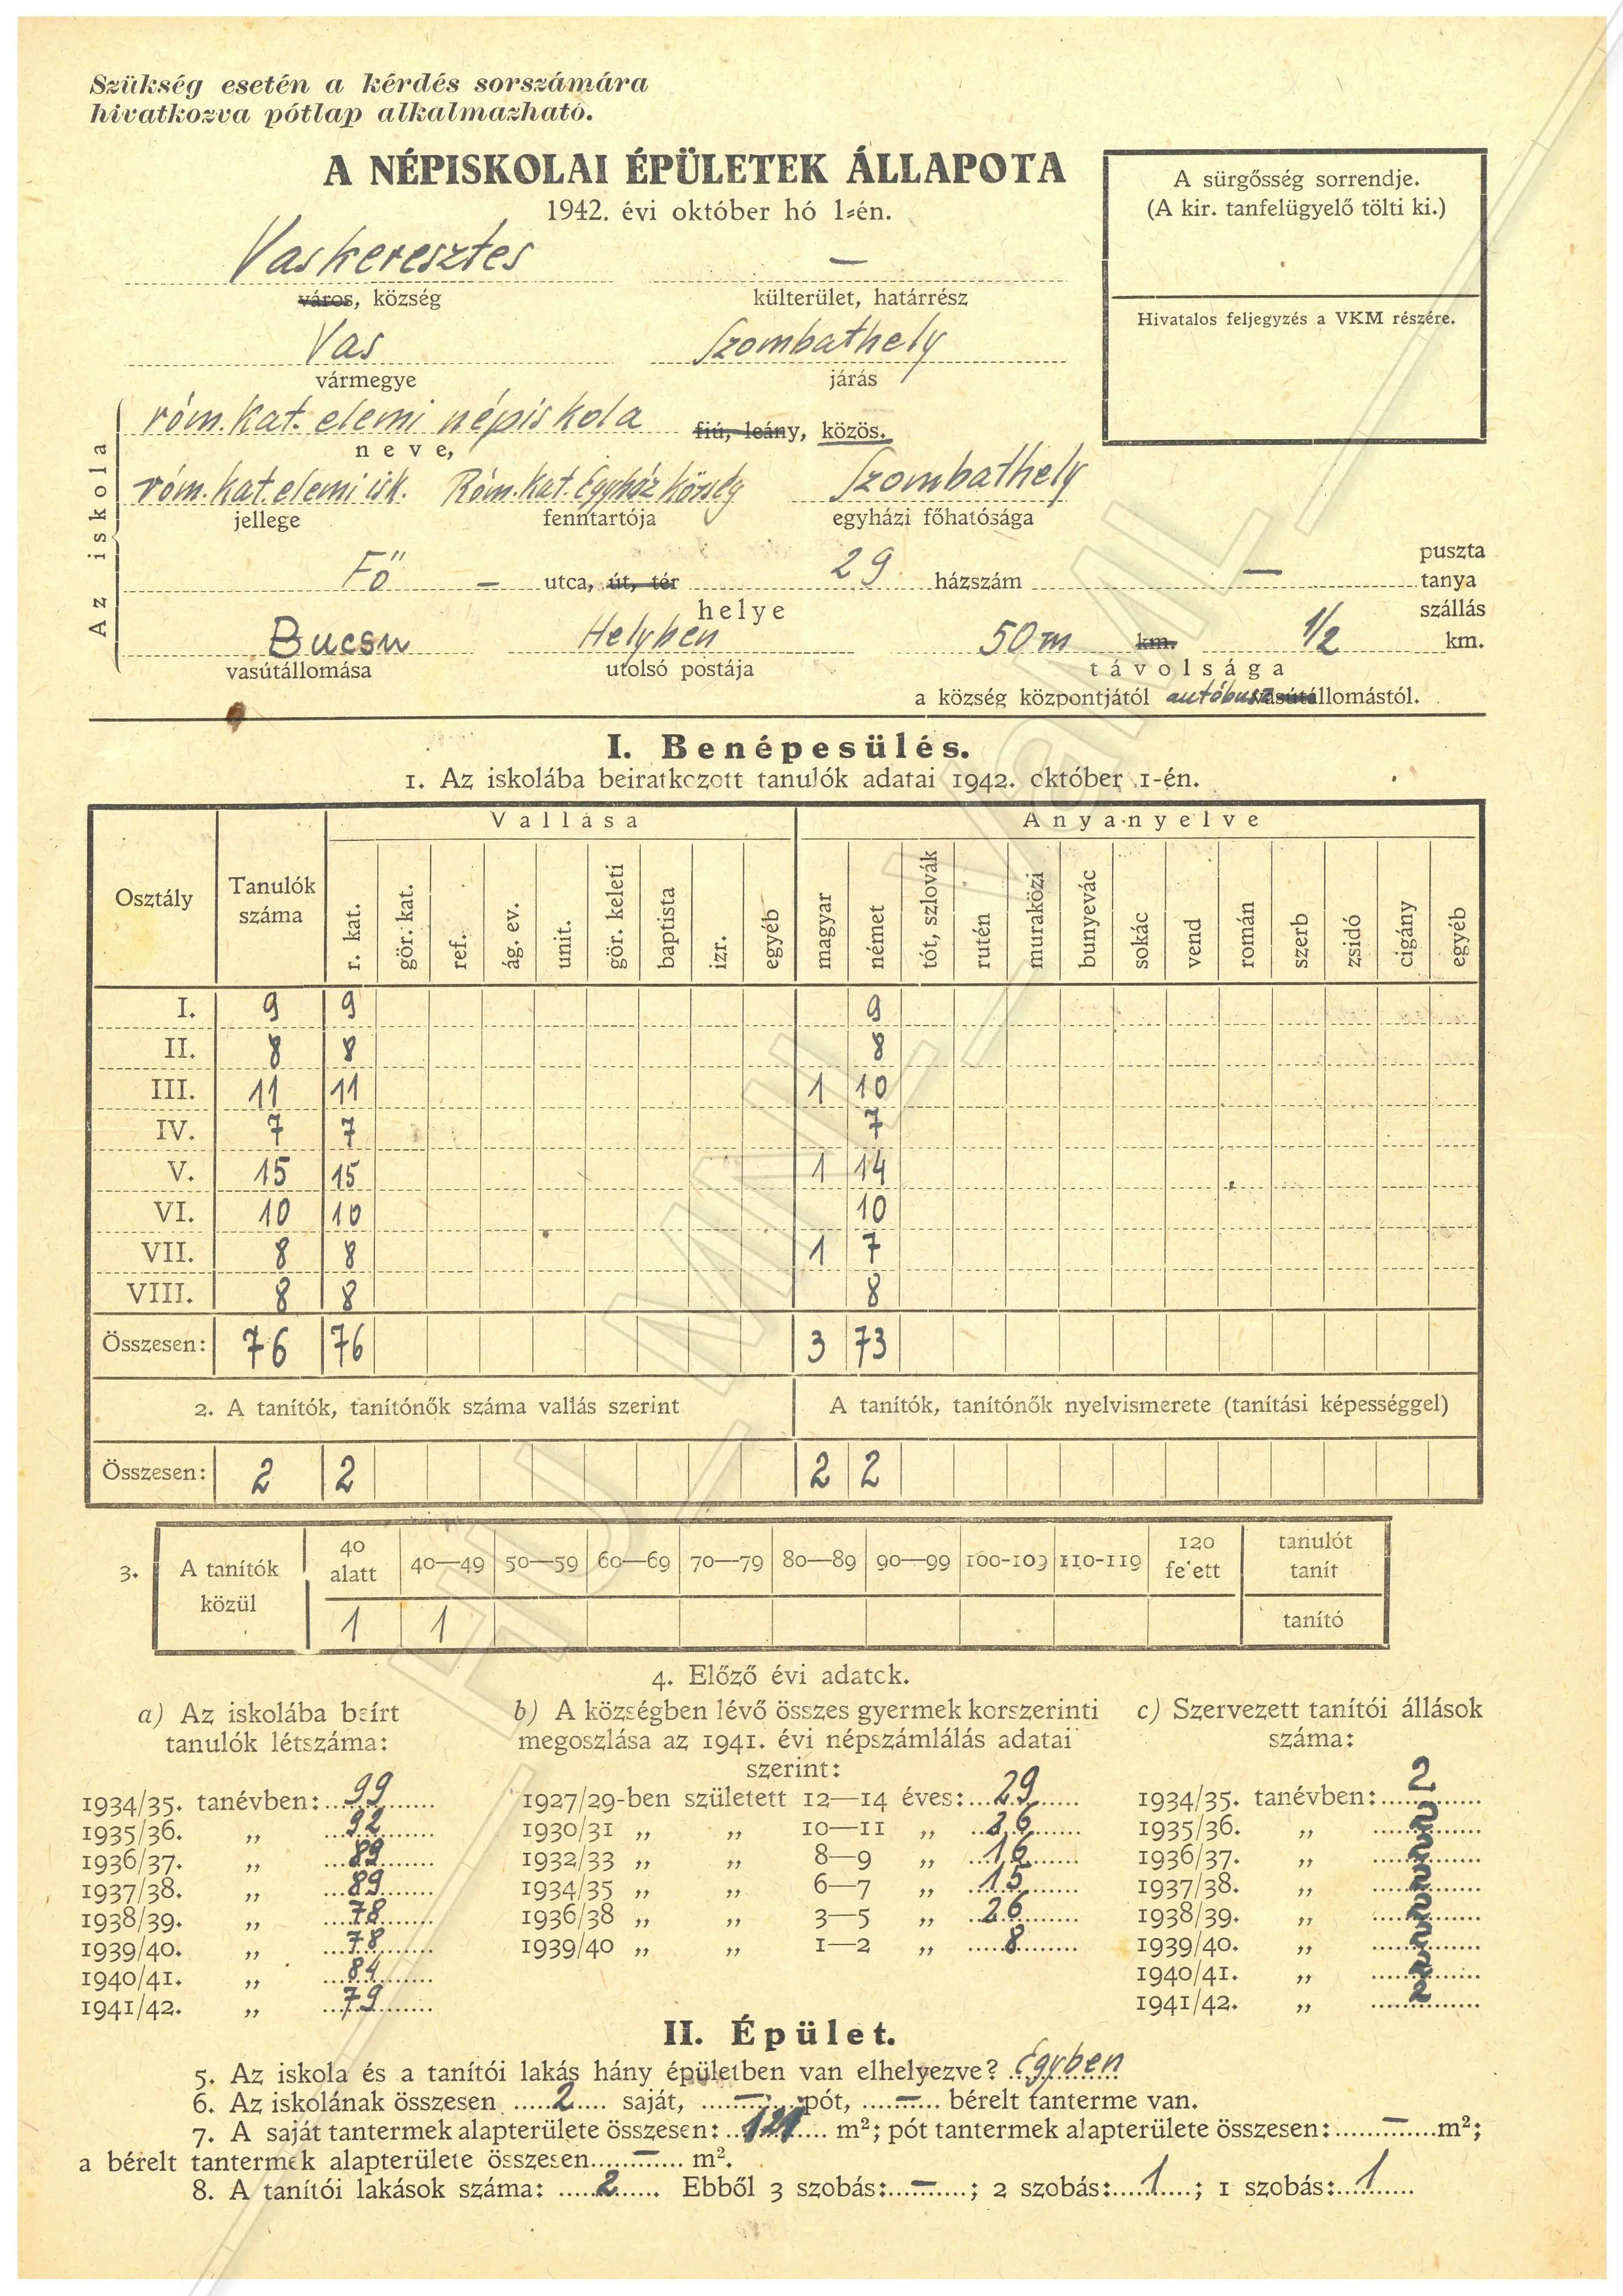 Szükség esetén a kérdés sorszámára
hivatkozva pótlap alkalmazható.
A NÉPISKOLAI ÉPÜLETEK ÁLLAPOTA
1942. évi október hó 1-én.
A sürgősség sorrendje.
(A kir. tanfelügyelő tölti ki.)
Hivatalos feljegyzés a VKM részére.
Vaskeresztes —
város, község külterület, határrész
Vas Szombathely
vármegye járás
Az iskola
róm. kat. elemi népiskola fiú, leány, közös.
neve,
róm. kat. elemi isk. Róm. kat. Egyház község Szombathely
jellege fenntartója egyházi főhatósága
Fő — utca, út, tér 29 házszám — puszta
tanya
szállás
helye
Bucsu Helyben 50 m km. 1/2 km.
vasútállomása utolsó postája távolsága
a község központjától autóbusz vasútállomástól.
I. Benépesülés.
1. Az iskolába beiratkozott tanulók adatai 1942. október 1-én.
Vallása Anyanyelve
Osztály Tanulók száma r. kat. gör. kat. ref. ág. ev. unit. gör. keleti baptista izr. egyéb magyar német tót, szlovák rutén muraközi bunyevác sokác vend román szerb zsidó cigány egyéb
I. 9 9 9
II. 8 8 8
III. 11 11 1 10
IV. 7 7 7
V. 15 15 1 14
VI. 10 10 10
VII. 8 8 1 7
VIII. 8 8 8
Összesen: 76 76 3 73
2. A tanítók, tanítónők száma vallás szerint A tanítók, tanítónők nyelvismerete (tanítási képességgel)
Összesen: 2 2 2 2
3. A tanítók közül 40 alatt 40—49 50—59 60—69 70—79 80—89 90—99 100-109 110-119 120 felett tanulót tanít
1 1 tanító
4. Előző évi adatok.
a) Az iskolába beírt
tanulók létszáma:
1934/35. tanévben: 99
1935/36. „ 92
1936/37. „ 89
1937/38. „ 89
1938/39. „ 78
1939/40. „ 78
1940/41. „ 84
1941/42. „ 79
b) A községben lévő összes gyermek korszerinti
megoszlása az 1941. évi népszámlálás adatai
szerint:
1927/29-ben született 12—14 éves: 29
1930/31 „ „ 10—11 „ 26
1932/33 „ „ 8—9 „ 16
1934/35 „ „ 6—7 „ 15
1936/38 „ „ 3—5 „ 26
1939/40 „ „ 1—2 „ 8
c) Szervezett tanítói állások
száma:
1934/35. tanévben: 2
1935/36. „ 2
1936/37. „ 2
1937/38. „ 2
1938/39. „ 2
1939/40. „ 2
1940/41. „ 2
1941/42. „ 2
II. Épület.
5. Az iskola és a tanítói lakás hány épületben van elhelyezve? Egyben
6. Az iskolának összesen 2 saját, — pót, — bérelt tanterme van.
7. A saját tantermek alapterülete összesen: 121 m²; pót tantermek alapterülete összesen: — m²;
a bérelt tantermek alapterülete összesen — m².
8. A tanítói lakások száma: 2. Ebből 3 szobás: —; 2 szobás: 1; 1 szobás: 1
HU_MNL_VaML